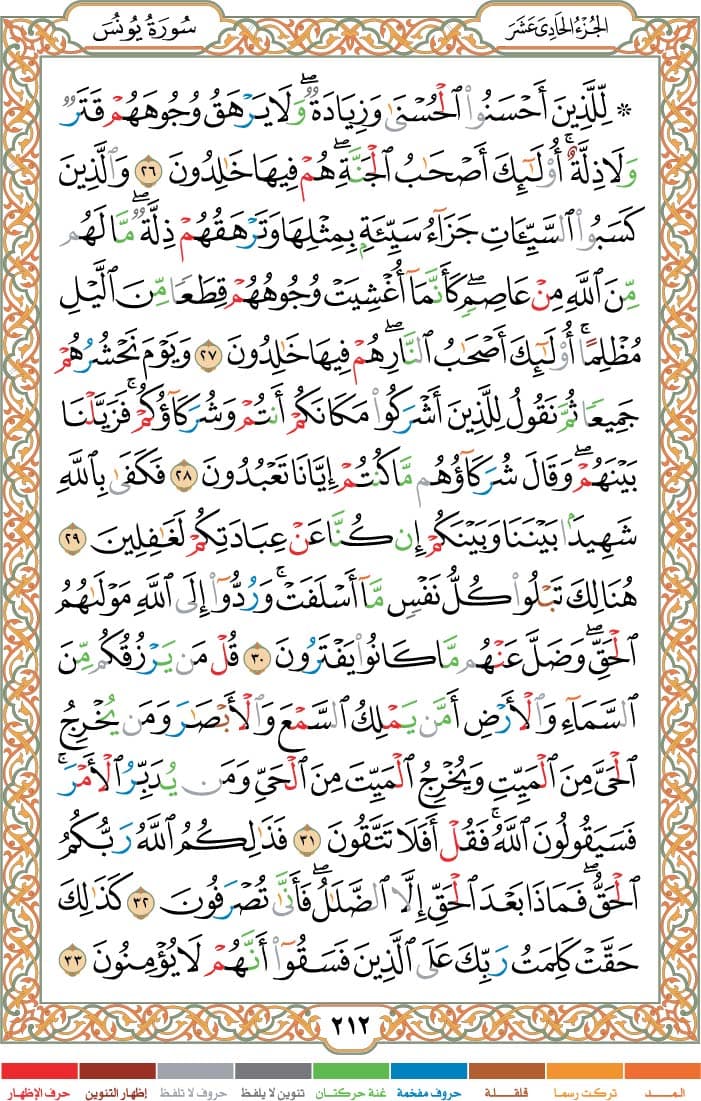 سُورَةُ يُونُسَ
الجُزْءُ الحَادِىَ عَشَرَ
۞ لِّلَّذِينَ أَحْسَنُوا۟ ٱلْحُسْنَىٰ وَزِيَادَةٌ ۖ وَلَا يَرْهَقُ وُجُوهَهُمْ قَتَرٌ
وَلَا ذِلَّةٌ ۚ أُو۟لَـٰٓئِكَ أَصْحَـٰبُ ٱلْجَنَّةِ ۖ هُمْ فِيهَا خَـٰلِدُونَ ٢٦ وَٱلَّذِينَ
كَسَبُوا۟ ٱلسَّيِّـَٔاتِ جَزَآءُ سَيِّئَةٍۭ بِمِثْلِهَا وَتَرْهَقُهُمْ ذِلَّةٌ ۖ مَّا لَهُم
مِّنَ ٱللَّهِ مِنْ عَاصِمٍ ۖ كَأَنَّمَآ أُغْشِيَتْ وُجُوهُهُمْ قِطَعًا مِّنَ ٱلَّيْلِ
مُظْلِمًا ۚ أُو۟لَـٰٓئِكَ أَصْحَـٰبُ ٱلنَّارِ ۖ هُمْ فِيهَا خَـٰلِدُونَ ٢٧ وَيَوْمَ نَحْشُرُهُمْ
جَمِيعًا ثُمَّ نَقُولُ لِلَّذِينَ أَشْرَكُوا۟ مَكَانَكُمْ أَنتُمْ وَشُرَكَآؤُكُمْ ۚ فَزَيَّلْنَا
بَيْنَهُمْ ۖ وَقَالَ شُرَكَآؤُهُم مَّا كُنتُمْ إِيَّانَا تَعْبُدُونَ ٢٨ فَكَفَىٰ بِٱللَّهِ
شَهِيدًۢا بَيْنَنَا وَبَيْنَكُمْ إِن كُنَّا عَنْ عِبَادَتِكُمْ لَغَـٰفِلِينَ ٢٩
هُنَالِكَ تَبْلُوا۟ كُلُّ نَفْسٍ مَّآ أَسْلَفَتْ ۚ وَرُدُّوٓا۟ إِلَى ٱللَّهِ مَوْلَىٰهُمُ
ٱلْحَقِّ ۖ وَضَلَّ عَنْهُم مَّا كَانُوا۟ يَفْتَرُونَ ٣٠ قُلْ مَن يَرْزُقُكُم مِّنَ
ٱلسَّمَآءِ وَٱلْأَرْضِ أَمَّن يَمْلِكُ ٱلسَّمْعَ وَٱلْأَبْصَـٰرَ وَمَن يُخْرِجُ
ٱلْحَىَّ مِنَ ٱلْمَيِّتِ وَيُخْرِجُ ٱلْمَيِّتَ مِنَ ٱلْحَىِّ وَمَن يُدَبِّرُ ٱلْأَمْرَ ۚ
فَسَيَقُولُونَ ٱللَّهُ ۚ فَقُلْ أَفَلَا تَتَّقُونَ ٣١ فَذَٰلِكُمُ ٱللَّهُ رَبُّكُمُ
ٱلْحَقُّ ۖ فَمَاذَا بَعْدَ ٱلْحَقِّ إِلَّا ٱلضَّلَـٰلُ ۖ فَأَنَّىٰ تُصْرَفُونَ ٣٢ كَذَٰلِكَ
حَقَّتْ كَلِمَتُ رَبِّكَ عَلَى ٱلَّذِينَ فَسَقُوٓا۟ أَنَّهُمْ لَا يُؤْمِنُونَ ٣٣
٢١٢
المــــد تركت رسما قلقـــلة حروف مفخمة غنة حركتان تنوين لا يلفظ حروف لا تلفظ إظهار التنوين حرف الإظهار